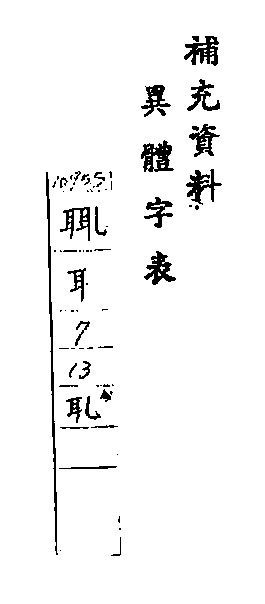 補充資料：
異體字表
10955
耳
7
13
耴